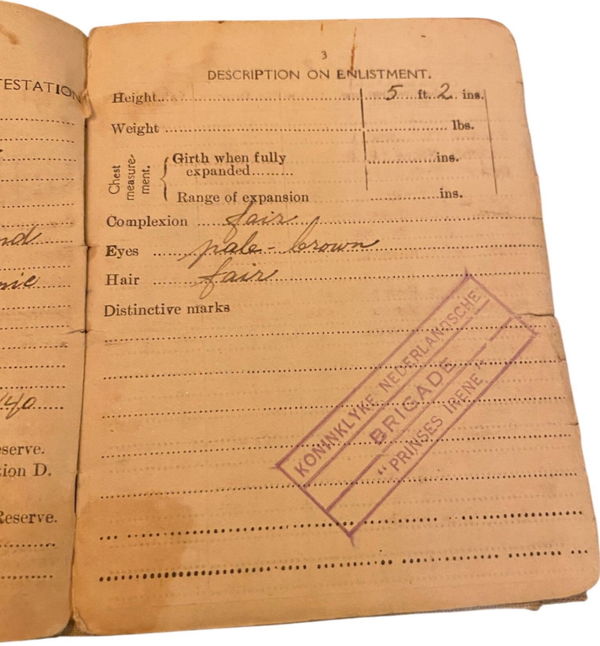 TESTATION
nd
nic
40
eserve.
ion D.
Reserve.
3
DESCRIPTION ON ENLISTMENT.
Height... 5 ft. 2 ins.
Weight ... lbs.
Chest measure-ment.
Girth when fully
expanded......... ins.
Range of expansion ... ins.
Complexion fair
Eyes ... pale - brown
Hair ... fair
Distinctive marks
KONINKLYKE NEDERLANDSCHE
BRIGADE
"PRINSES IRENE"